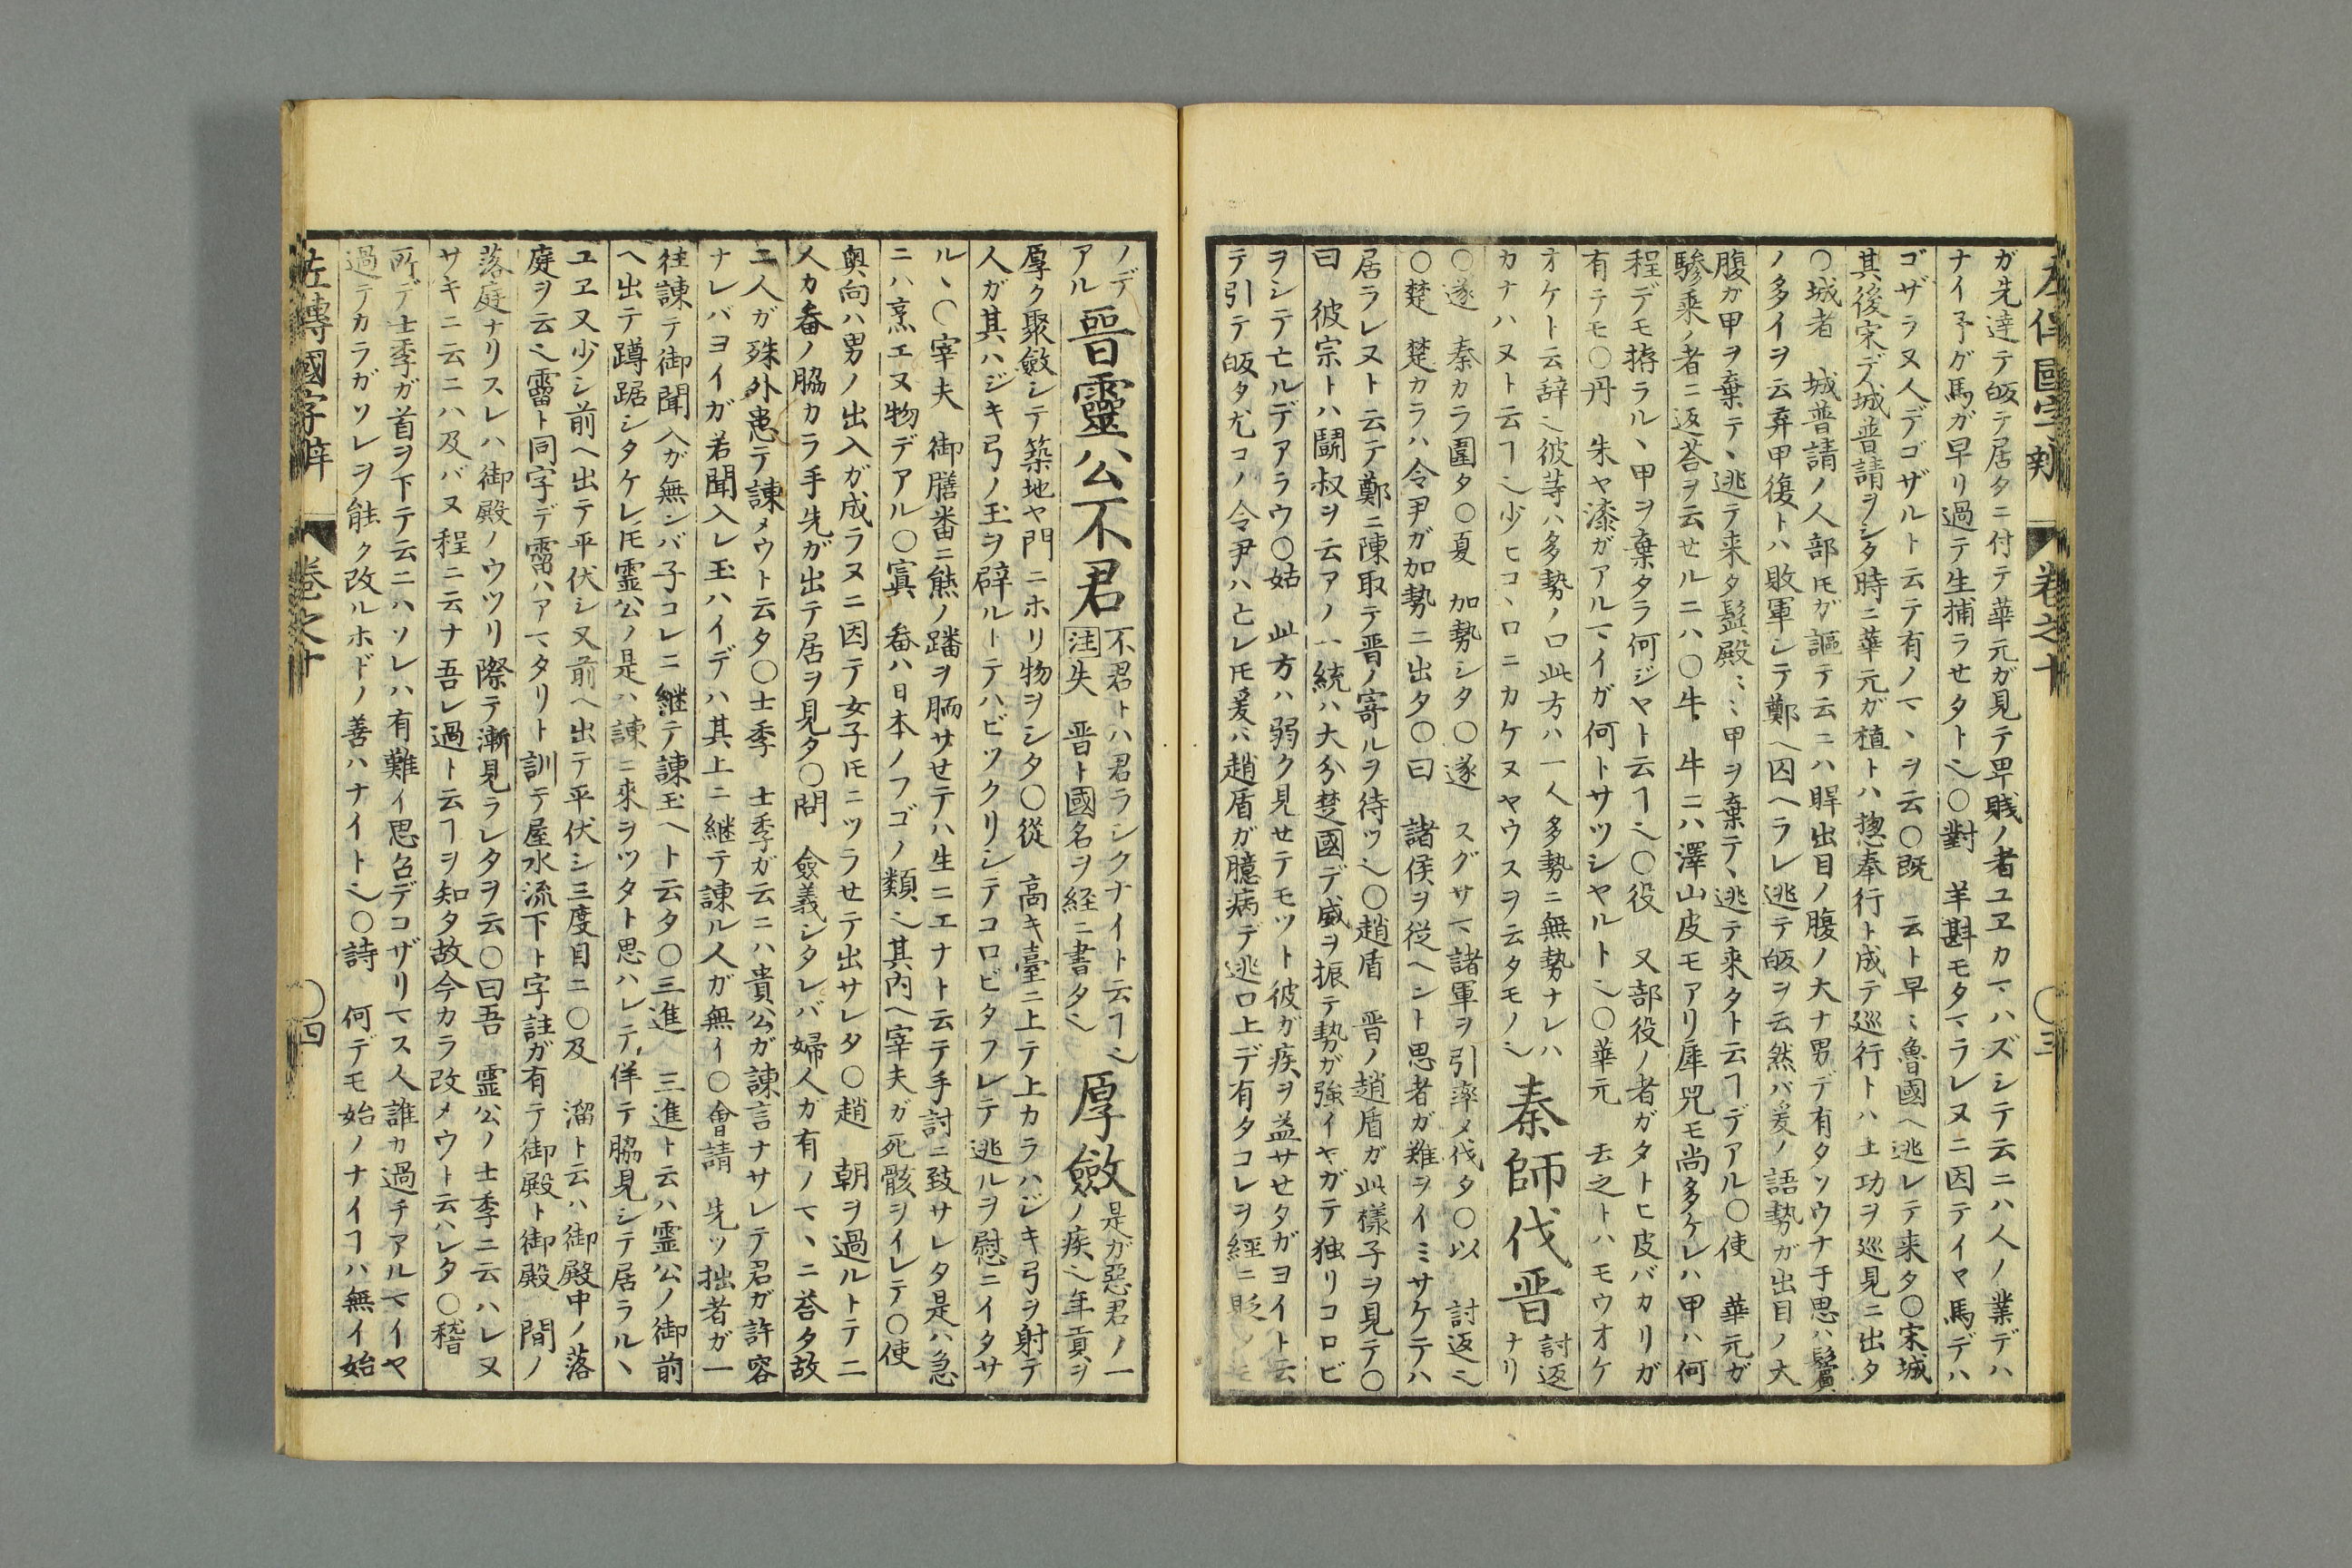 ガ先達テ皈テ居タニ付テ華元ガ見テ卑賎ノ者ユヱカマハズシテ云ニハ人ノ業デハ
ナイ予ガ馬ガ早リ過テ生捕ラセタト〇對 羊斟モタマラレヌニ因テイマ馬デハ
ゴザラヌ人デゴザルト云テ有ノマヽヲ云〇既 云ト早〻魯國ヘ逃レテ来タ〇宋城
其後宋デ城普請ヲシタ時ニ華元ガ植トハ惣奉行ト成テ巡行トハ土功ヲ巡見ニ出タ
〇城者 城普請ノ人部𪜈ガ謳テ云ニハ睅出目ノ腹ノ大ナ男デ有タソウナ于思ハ鬚
ノ多イヲ云弃甲復トハ敗軍シテ鄭ヘ囚ヘラレ逃テ皈ヲ云然バ爰ノ語勢ガ出目ノ大
腹ガ甲ヲ棄テヽ逃テ来タ鬚殿〻〻甲ヲ棄テヽ逃テ来タト云ヿデアル〇使 華元ガ
驂乗ノ者ニ返荅ヲ云セルニハ〇牛 牛ニハ澤山皮モアリ犀兕モ尚多ケレハ甲ハ何
程デモ拵ラルヽ甲ヲ棄タラ何ジヤト云ヿ〇役 又部役ノ者ガタトヒ皮バカリガ
有テモ〇丹 朱ヤ漆ガアルマイガ何トサツシヤルト〇華元 去之トハモウオケ
オケト云辞彼等ハ多勢ノ口此方ハ一人多勢ニ無勢ナレハ
カナハヌト云ヿ少ヒコヽロニカケヌヤウスヲ云タモノ
秦師伐晋
討返
ナリ
〇遂 秦カラ圍タ〇夏 加勢シタ〇遂 スグサマ諸軍ヲ引率メ伐タ〇以 討返
〇楚 楚カラハ令尹ガ加勢ニ出タ〇曰 諸侯ヲ従ヘント思者ガ難ヲイミサケテハ
居ラレヌト云テ鄭ニ陳取テ晋ノ寄ルヲ待ツ〇趙盾 晋ノ趙盾ガ此様子ヲ見テ〇
曰 彼宗トハ鬪叔ヲ云アノ一統ハ大分楚國デ威ヲ振テ勢ガ強イヤガテ独リコロビ
ヲシテ亡ルデアラウ〇姑 此方ハ弱ク見セテモツト彼ガ疾ヲ益サセタガヨイト云
テ引テ皈タ尤コノ令尹ハ亡レ𪜈爰ハ趙盾ガ臆病デ逃口上デ有タコレヲ經ニ貶ノ
卷之十
〇三
ノデ
アル
晋靈公不君
不君トハ君ラシクナイト云ヿ
注失 晋ト國名ヲ経ニ書タ
厚斂
是ガ惡君ノ一
ノ疾年貢ヲ
厚ク聚斂シテ築地ヤ門ニホリ物ヲシタ〇從 高キ臺ニ上テ上カラハジキ弓ヲ射テ
人ガ其ハジキ弓ノ玉ヲ辟ルトテハビツクリシテコロビタフレテ逃ルヲ慰ニイタサ
ルヽ〇宰夫 御膳番ニ熊ノ蹯ヲ胹サセテハ生ニエナト云テ手討ニ致サレタ是ハ急
ニハ烹エヌ物デアル〇寘 畚ハ日本ノフゴノ類其内ヘ宰夫ガ死骸ヲイレテ〇使
奥向ハ男ノ出入ガ成ラヌニ因テ女子𪜈ニツラセテ出サレタ〇趙 朝ヲ過ルトテ二
人カ畚ノ脇カラ手先ガ出テ居ヲ見タ〇問 僉義シタレバ婦人ガ有ノマヽニ荅タ故
二人ガ殊外患テ諌メウト云タ〇士季 士季ガ云ニハ貴公ガ諌言ナサレテ君ガ許容
ナレバヨイガ若聞入レ玉ハイデハ其上ニ継テ諌ル人ガ無イ〇會請 先ツ拙者ガ一
徃諌テ御聞入ガ無ンバ子コレニ継テ諌玉ヘト云タ〇三進 三進ト云ハ霊公ノ御前
ヘ出テ蹲踞シタケレ𪜈霊公ノ是ハ諌ニ來ヲツタト思ハレテ佯テ脇見シテ居ラルヽ
ユヱ又少シ前ヘ出テ平伏シ又前ヘ出テ平伏シ三度目ニ〇及 溜ト云ハ御殿中ノ落
庭ヲ云霤ト同字デ霤ハアマタリト訓テ屋水流下ト字註ガ有テ御殿ト御殿 間ノ
落庭ナリスレハ御殿ノウツリ際テ漸見ラレタヲ云〇曰吾 霊公ノ士季ニ云ハレ又
サキニ云ニハ及バヌ程ニ云ナ吾レ過ト云ヿヲ知タ故今カラ改メウト云ハレタ〇稽
所デ士季ガ首ヲ下テ云ニハソレハ有難イ思召デコザリマス人誰カ過チアルマイヤ
過テカラガソレヲ能ク改ルホドノ善ハナイト〇詩 何デモ始ノナイヿハ無イ始
左傳國字辨
卷之十
〇四